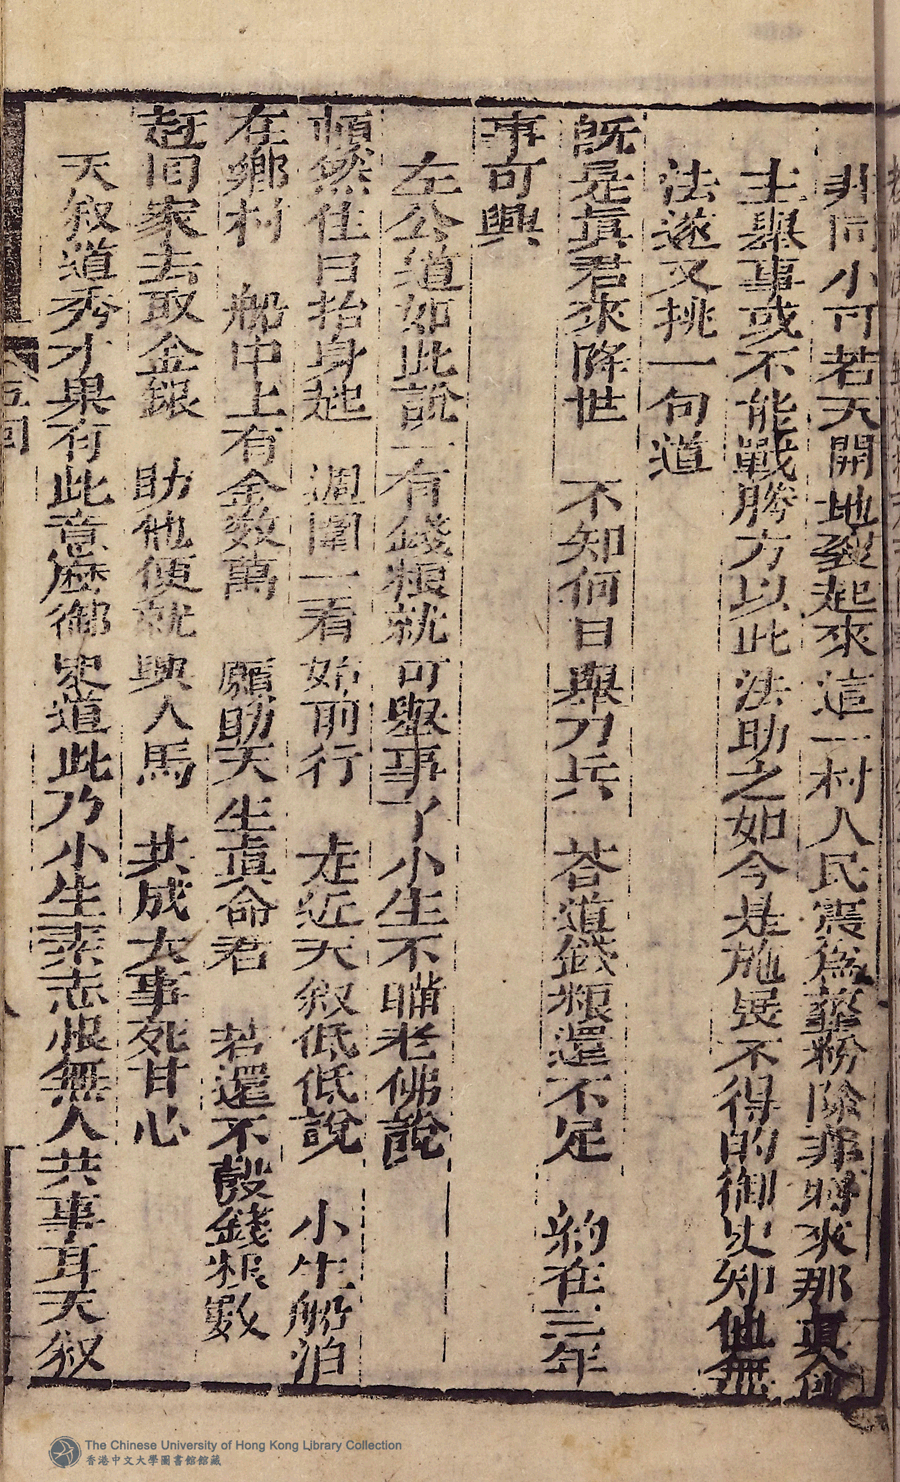 非同小可若天開地裂起來這一村人民震為虀粉除非將來那真命
主舉事或不能戰勝方以此法助之如今是施展不得的御史知他無
法遂又挑一句道
既是真君來降世 不知何日舉刀兵 荅道錢粮還不足 約在三年
事可興
左公道如此說一有錢粮就可舉事了小生不瞞老佛說
頓然住口抬身起 週圍一看始前行 走近天叙低低說 小生船泊
在鄉村 船中上有金数萬 願助天生真命君 若還不彀錢粮數
赶回家去取金銀 助他便就興人馬 共成大事死甘心
天叙道秀才果有此意麽御史道此乃小生素志恨無人共事耳天叙
五回
The Chinese University of Hong Kong Library Collection
香港中文大學圖書館館藏